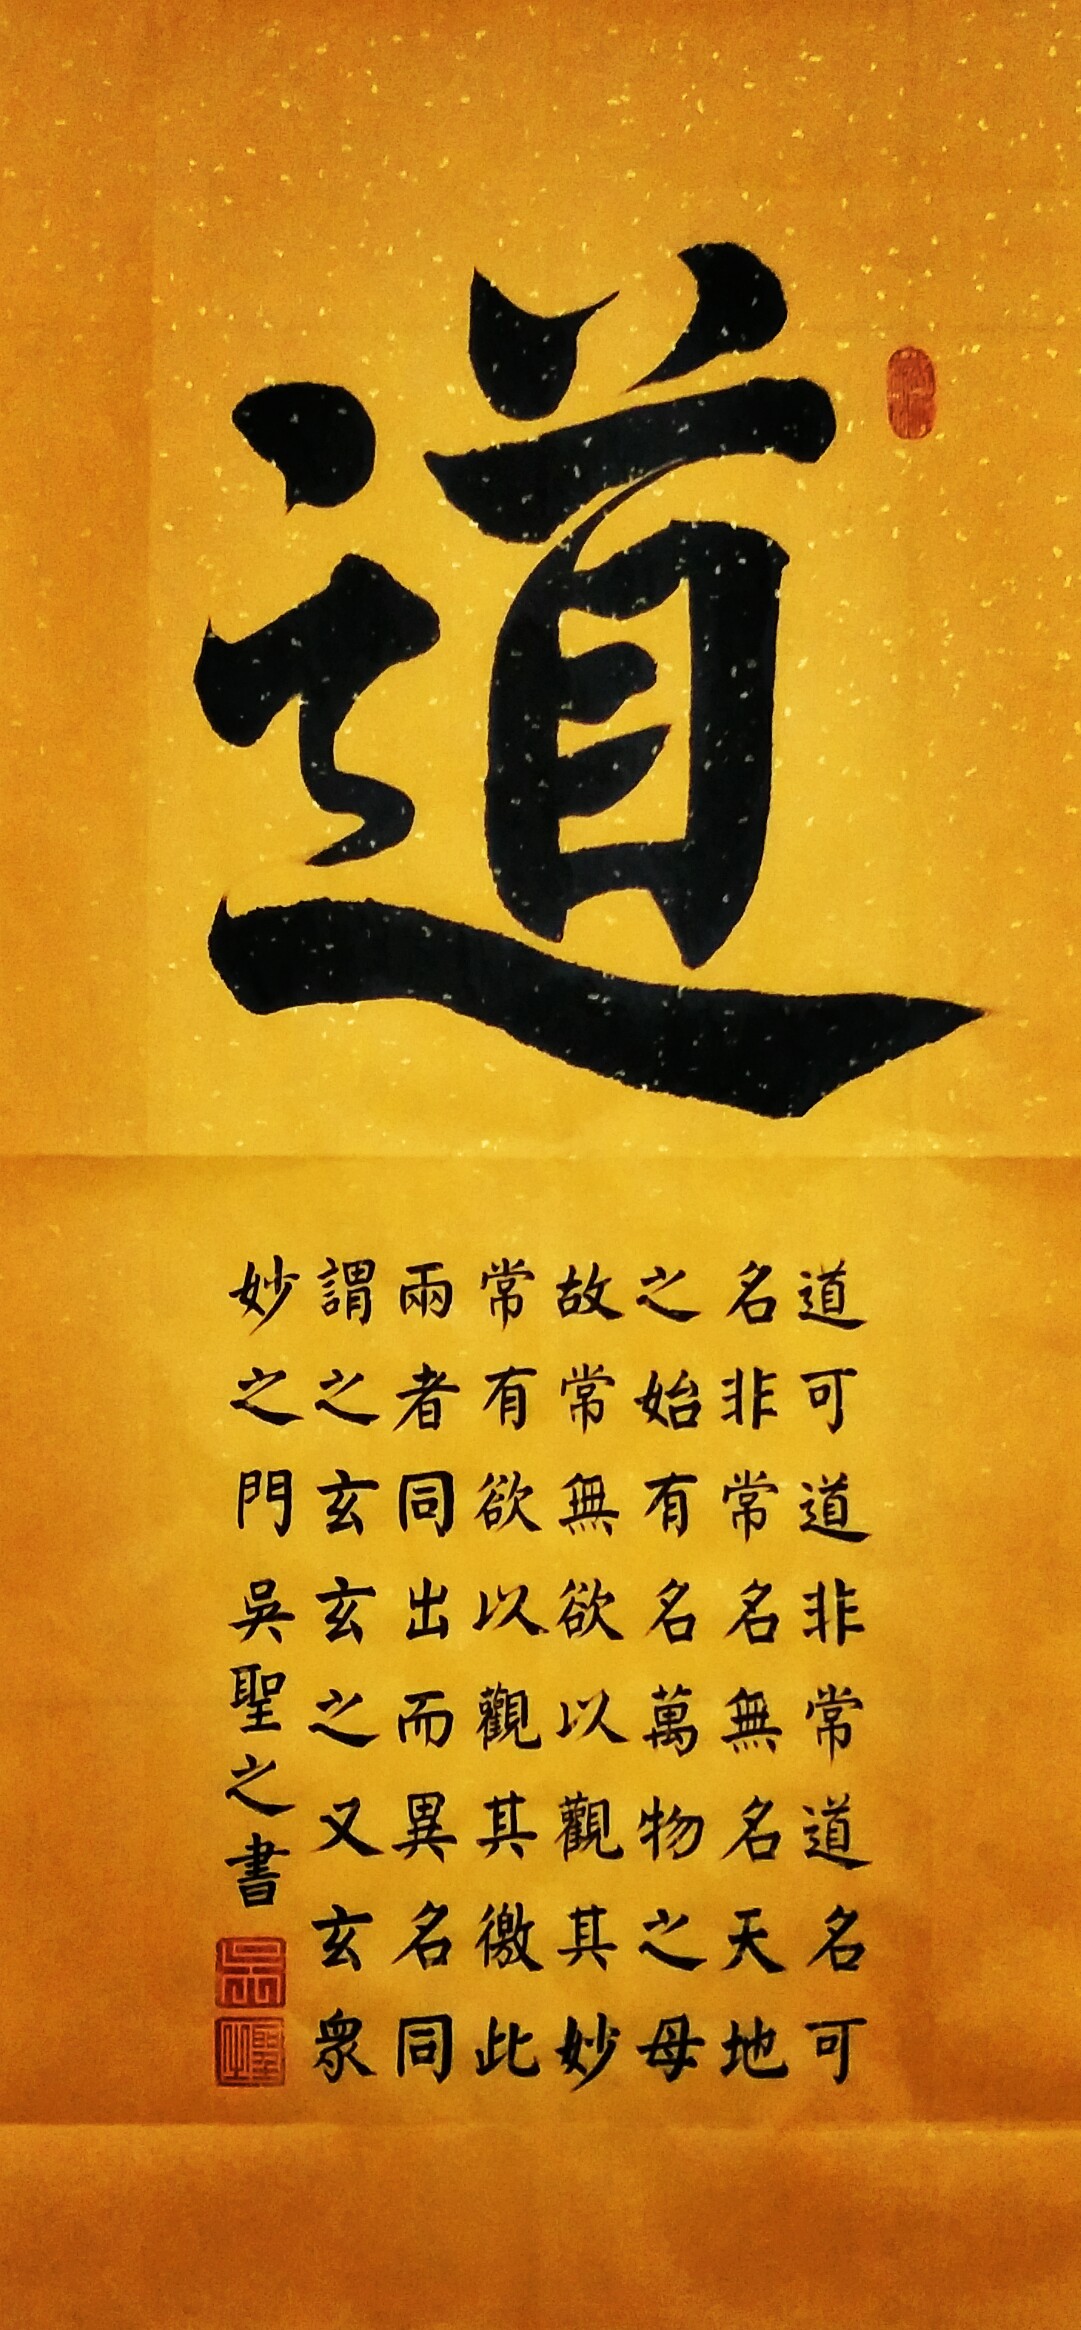 道
道可道非常道名可
名非常名無名天地
之始有名萬物之母
故常無欲以觀其妙
常有欲以觀其徼此
兩者同出而異名同
謂之玄玄之又玄衆
妙之門吳聖之書